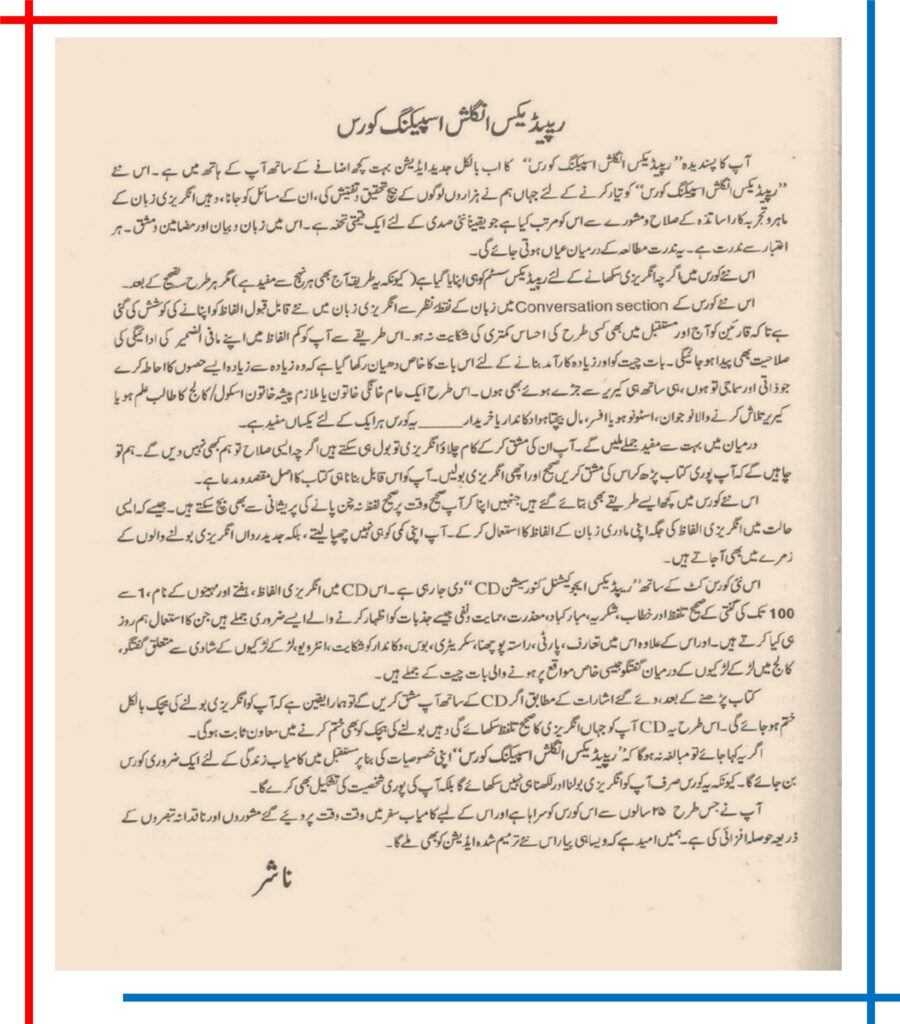 ریپیڈیکس انگلش اسپیکنگ کورس
آپ کا پسندیدہ ”ریپیڈیکس انگلش اسپیکنگ کورس“ کا اب بالکل جدید ایڈیشن بہت کچھ اضافے کے ساتھ آپ کے ہاتھ میں ہے۔ اس نئے
”ریپیڈیکس انگلش اسپیکنگ کورس“ کو تیار کرنے کے لئے جہاں ہم نے ہزاروں لوگوں کے بیچ تحقیق و تفتیش کی، ان کے مسائل کو جانا، وہیں انگریزی زبان کے
ماہر و تجربہ کار اساتذہ کے صلاح و مشورے سے اس کو مرتب کیا ہے جو یقیناً نئی صدی کے لئے ایک قیمتی تحفہ ہے۔ اس میں زبان و بیان اور مضامین و مشق۔ ہر
اعتبار سے ندرت ہے۔ یہ ندرت مطالعہ کے درمیان عیاں ہوتی جائے گی۔
اس نئے کورس میں اگرچہ انگریزی سکھانے کے لئے ریپیڈیکس سسٹم کو ہی اپنایا گیا ہے (کیونکہ یہ طریقہ آج بھی ہر نہج سے مفید ہے) مگر ہر طرح سے تصحیح کے بعد۔
اس نئے کورس کے Conversation section میں زبان کے نقطۂ نظر سے انگریزی زبان میں نئے قابل قبول الفاظ کو اپنانے کی کوشش کی گئی
ہے تاکہ قارئین کو آج اور مستقبل میں بھی کسی طرح کی احساس کمتری کی شکایت نہ ہو۔ اس طریقے سے آپ کو کم الفاظ میں اپنے مافی الضمیر کی ادائیگی کی
صلاحیت بھی پیدا ہو جائیگی۔ بات چیت کو اور زیادہ کارآمد بنانے کے لئے اس بات کا خاص دھیان رکھا گیا ہے کہ وہ زیادہ سے زیادہ ایسے حصوں کا احاطہ کرے
جو ذاتی اور سماجی تو ہوں، ہی ساتھ ہی کیریر سے جڑے ہوئے بھی ہوں۔ اس طرح ایک عام خانگی خاتون یا ملازم پیشہ خاتون اسکول/کالج کا طالب علم ہو یا
کیریر تلاش کرنے والا نوجوان، اسٹونو ہو یا افسر، مال بیچتا ہوا دکاندار یا خریدار _____ یہ کورس ہر ایک کے لئے یکساں مفید ہے۔
درمیان میں بہت سے مفید جملے ملیں گے۔ آپ ان کی مشق کر کے کام چلاؤ انگریزی تو بول ہی سکتے ہیں اگرچہ ایسی صلاح تو ہم کبھی نہیں دیں گے۔ ہم تو
چاہیں گے کہ آپ پوری کتاب پڑھ کر اس کی مشق کریں صحیح اور اچھی انگریزی بولیں۔ آپ کو اس قابل بنانا ہی کتاب کا اصل مقصد و مدعا ہے۔
اس نئے کورس میں کچھ ایسے طریقے بھی بتائے گئے ہیں جنہیں اپنا کر آپ صحیح وقت پر صحیح لفظ نہ چن پانے کی پریشانی سے بھی بچ سکتے ہیں۔ جیسے کہ ایسی
حالت میں انگریزی الفاظ کی جگہ اپنی مادری زبان کے الفاظ کا استعمال کر کے۔ آپ اپنی کمی کو ہی نہیں چھپا لیتے، بلکہ جدید رواں انگریزی بولنے والوں کے
زمرے میں بھی آ جاتے ہیں۔
اس نئی کورس کٹ کے ساتھ ”ریپیڈیکس ایجوکیشنل کنورسیشن CD“ دی جا رہی ہے۔ اس CD میں انگریزی الفاظ، ہفتے اور مہینوں کے نام، 1 سے
100 تک کی گنتی کے صحیح تلفظ اور خطاب، شکریہ، مبارکباد، معذرت، حمایت و نفی جیسے جذبات کو اظہار کرنے والے ایسے ضروری جملے ہیں جن کا استعمال ہم روز
ہی کیا کرتے ہیں۔ اور اس کے علاوہ اس میں تعارف، پارٹی، راستہ پوچھنا، سکریٹری، بوس، دکاندار کو شکایت، انٹرویو، لڑکے لڑکیوں کے شادی سے متعلق گفتگو،
کالج میں لڑکے لڑکیوں کے درمیان گفتگو جیسی خاص مواقع پر ہونے والی بات چیت کے جملے ہیں۔
کتاب پڑھنے کے بعد، دئے گئے اشارات کے مطابق اگر CD کے ساتھ آپ مشق کریں گے تو ہمارا یقین ہے کہ آپ کو انگریزی بولنے کی ہچک بالکل
ختم ہو جائے گی۔ اس طرح یہ CD آپ کو جہاں انگریزی کا صحیح تلفظ سکھائے گی وہیں بولنے کی ہچک کو بھی ختم کرنے میں معاون ثابت ہوگی۔
اگر یہ کہا جائے تو مبالغہ نہ ہوگا کہ ”ریپیڈیکس انگلش اسپیکنگ کورس“ اپنی خصوصیات کی بنا پر مستقبل میں کامیاب زندگی کے لئے ایک ضروری کورس
بن جائے گا۔ کیونکہ یہ کورس صرف آپ کو انگریزی بولنا اور لکھنا ہی نہیں سکھائے گا بلکہ آپ کی پوری شخصیت کی تشکیل بھی کرے گا۔
آپ نے جس طرح ۲۵ سالوں سے اس کورس کو سراہا ہے اور اس کے لمبے کامیاب سفر میں وقت وقت پر دیئے گئے مشوروں اور ناقدانہ تبصروں کے
ذریعہ حوصلہ افزائی کی ہے۔ ہمیں امید ہے کہ ویسا ہی پیار اس نئے ترمیم شدہ ایڈیشن کو بھی ملے گا۔
ناشر